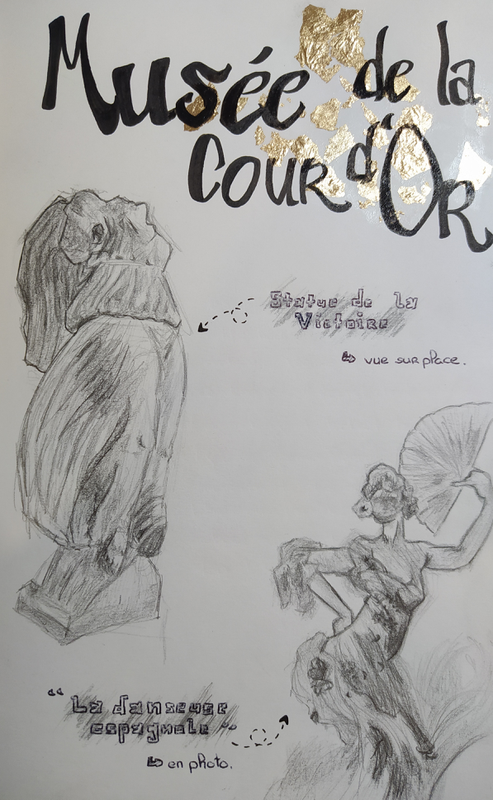 Musée de la
Cour d'Or
Statue de la
Victoire
↳ vue sur place.
"La danseuse
espagnole"
↳ en photo.